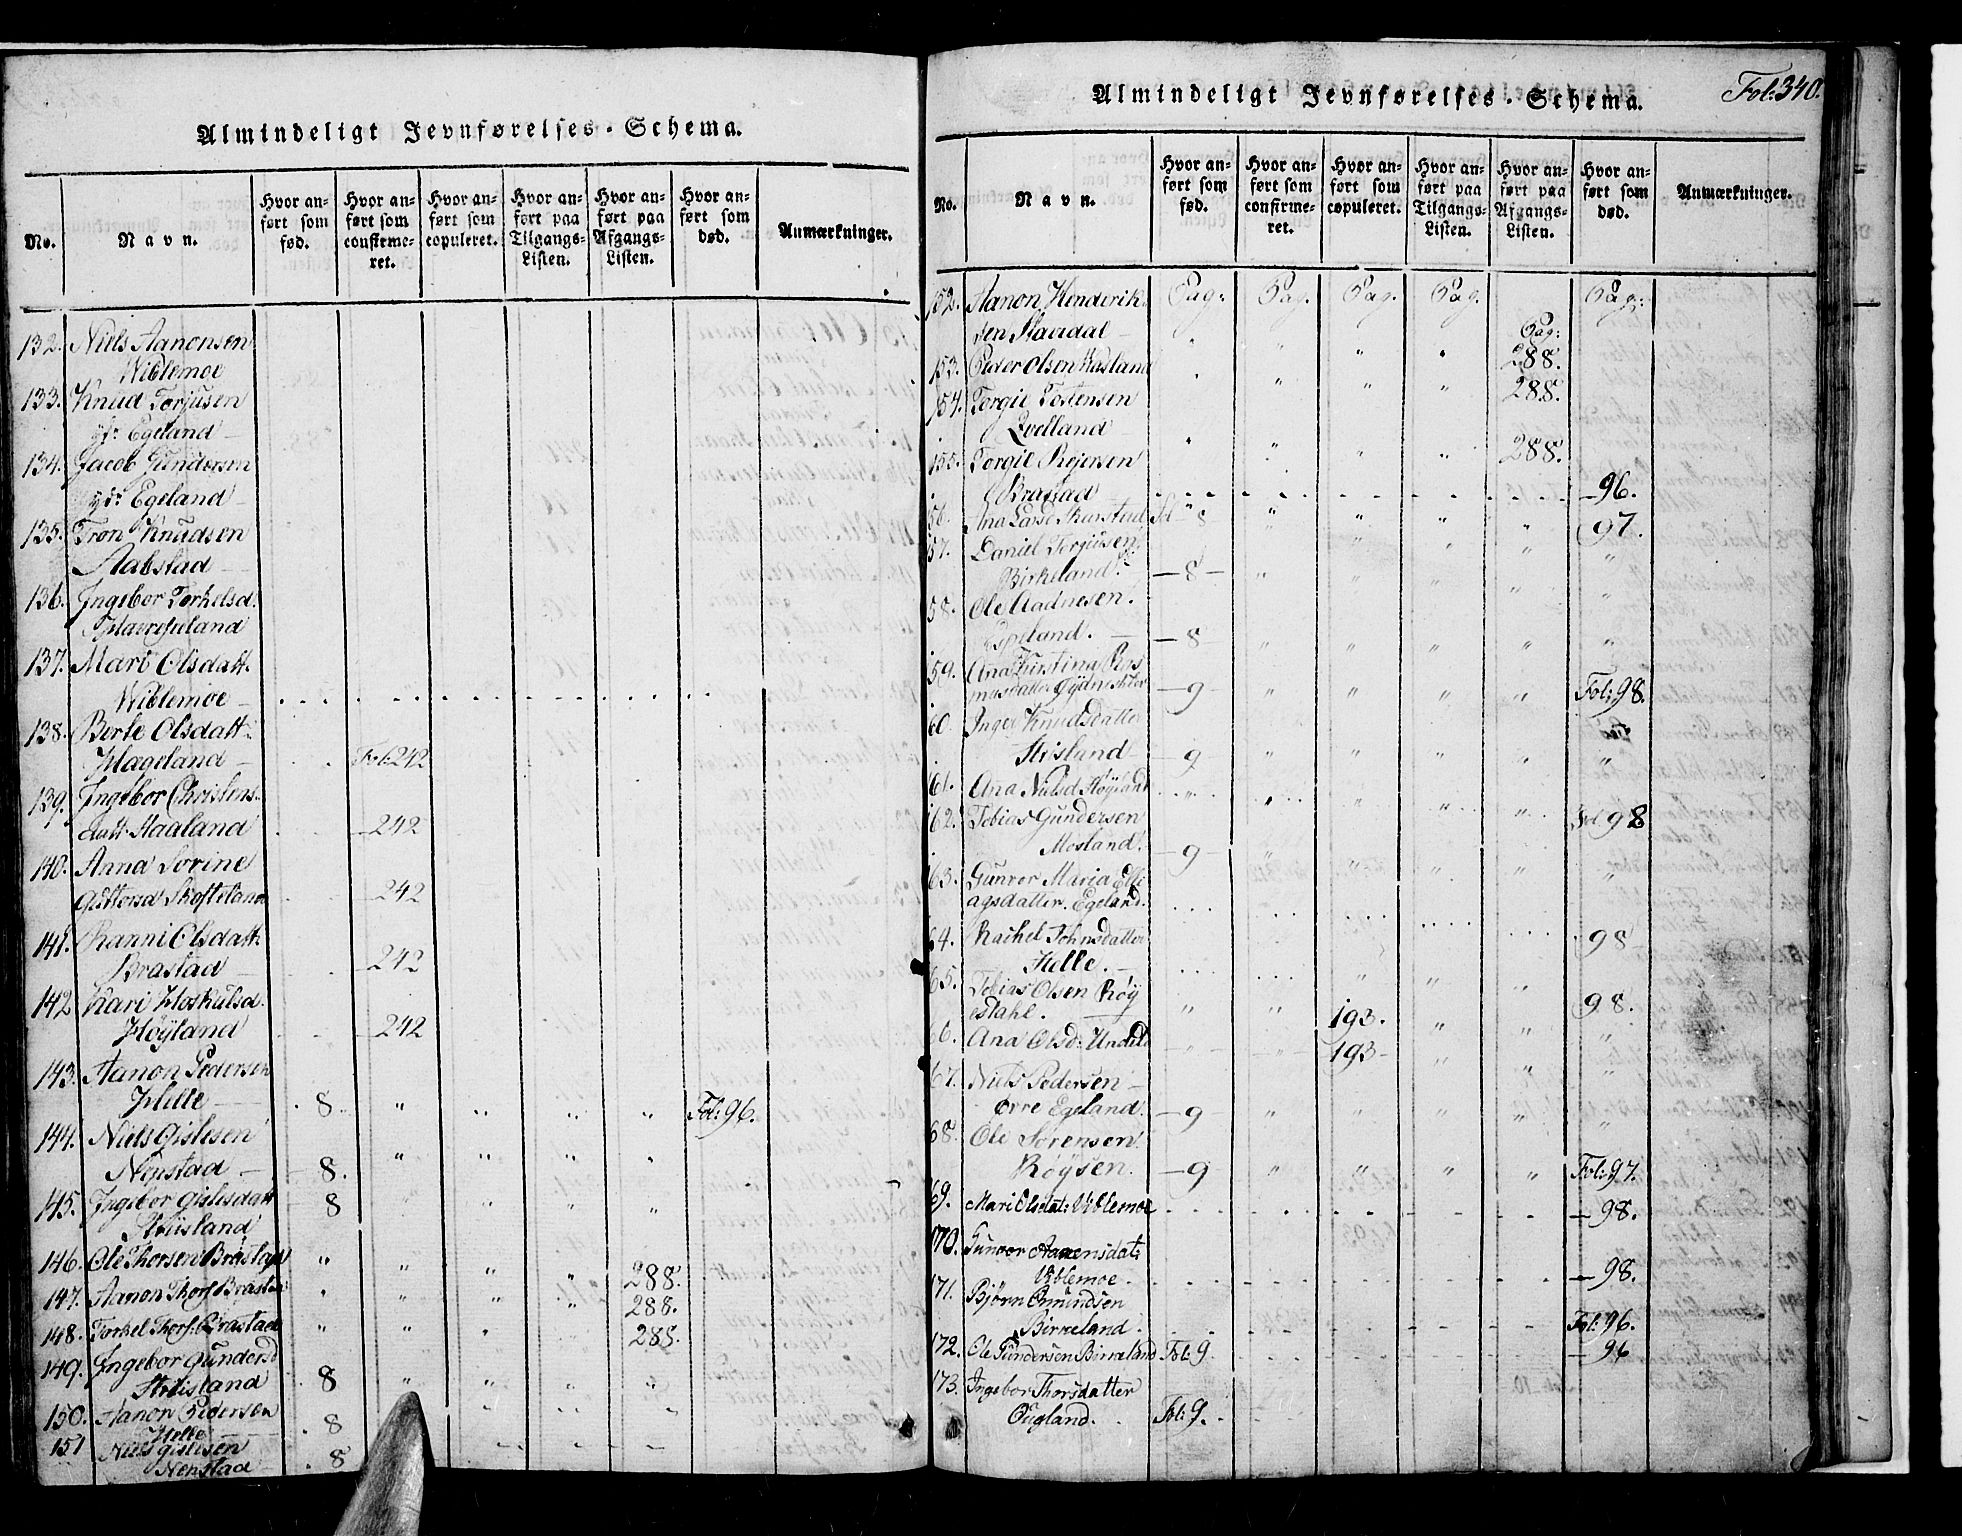 Almindeligt Jevnførelses-Schema.
No. Navn. Hvor anført som fød. Hvor anført som confirmeret. Hvor anført som copuleret. Hvor anført paa Tilgangs-Listen. Hvor anført paa Afgangs-Listen. Hvor anført som død. Anmærkninger.
132. Niels Aanonsen
Wiblemoe
133. Knud Torjusen
yfr Egeland
134. Jacob Gundersen
yfr Egeland
135. Tron Knudsen
Aabstad
136. Ingebor Torkelsd.
137. Mari Olsdatt.
Wiblemoe
138. Berte Olsdatt.
Hageland Fol: 242
139. Ingebor Christens
datt. Haaland 242
140. Anna Sorine
Guttorsd Skofteland 242
141. Ranni Olsdatt.
Brastad 242
142 Kari Hoskulsd.
Høyland 242
143. Aanon Pedersen
Helle 8. " " " " Fol: 96.
144. Niels Gislesen
Nenstad 8. " " " "
145. Ingebor Gislesdatt 8 " " " "
Strisland
146. Ole Thorsen Brastad " " " " 288.
147. Aanon Thors: Brastad " " " " 288.
148. Torkel Thors: Brastad " " " " 288.
149. Ingebor Gundersd
Strisland 8 " " " "
150. Aanon Pedersen
Helle 8
151 Niels Gislesen
Nenstad 8
Almindeligt Jevnførelses-Schema. Fol: 340.
No. Navn. Hvor anført som fød. Hvor anført som confirmeret. Hvor anført som copuleret. Hvor anført paa Tilgangs-Listen. Hvor anført paa Afgangs-Listen. Hvor anført som død. Anmærkninger.
152. Aanon Henderik Pag: Pag. Pag. Pag. Pag:
sen Staurdal Pag: 288.
153. Peder Olsen 288.
154. Torgie Tostensen
Qvelland 288.
155. Torgie Rejersen
Brastad 96.
56. Ana Larsd Fol 8 97.
57. Daniel Torgiusen
Birkeland. 8
58. Ole Aadnesen.
Espeland. 8
59. Ana Kirstina Ras
musdatter 9 Fol: 98.
60 Inger Knudsdatter
Strisland 9
61. Ana Nielsd Høyland Fol 98
62. Tobias Gundersen
Mosland. 9
63. Gunvor Maria Ell
agsdatter. Egeland.
64. Rachel Johnsdatter 98
Helle.
65. Tobias Olsen Røy
estahl. 193. 98.
66. Ana Olsd: 193
67. Niels Pedersen
Øvre Egeland. 9
68. Ole Sørensen
Røysen. 9 Fol: 97.
69. Mari Olsdat: Viblemoe 98.
170. Gunvor Aanensdat:
Viblemoe. 98.
171. Bjørn Omundsen
Birkeland. Fol: 96.
172. Ole Gundersen Birkeland Fol: 9. 96
173. Ingebor Thorsdatter
Øugland. Fol: 9.